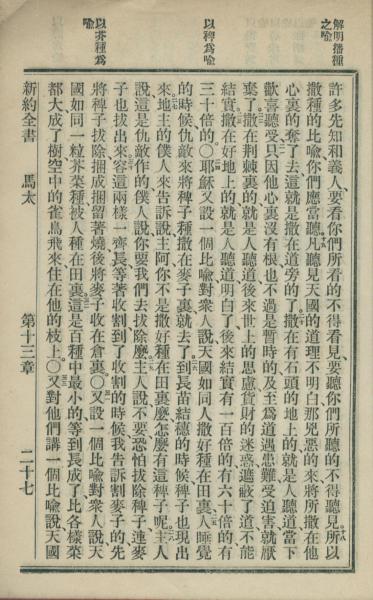 解明播種之喩
以稗為喩
以芥種為喩
許多先知和義人、要看你們所看的不得看見、要聽你們所聽的不得聽見、所以
撒種的比喩、你們應當聽、凡聽見天國的道理不明白、那兇惡的來、將所撒在他
心裏的奪了去、這就是撒在道旁的了、撒在有石頭的地上的、就是人聽道、當下
歡喜聽受、只因他心裏沒有根、也不過是暫時的、及至為道遇患難、受迫害、就厭
棄了、撒在荊棘裏的、就是人聽道、後來世上的思慮、貨財的迷惑、遮蔽了道、不能
結實、撒在好地上的、就是人聽道明白了、後來結實、有一百倍的、有六十倍的、有
三十倍的○耶穌又設一個比喩、對衆人說、天國如同人撒好種在田裏、人睡覺
的時候、仇敵來、將稗子種撒在麥子裏、就去了、到長苗結穗的時候、稗子也現出
來、地主的僕人來告訴說、主阿、你不是撒好種在田裏麼、怎麼有這稗子呢、主人
說、這是仇敵作的、僕人說、你要我們去拔除麼、主人說、不要、恐怕拔除稗子、連麥
子也拔出來、容這兩樣一齊長、等著收割、到了收割的時候、我告訴割麥子的、先
將稗子拔除、捆成捆、留著燒、後將麥子收在倉裏○又設一個比喩、對衆人說、天
國如同一粒芥菜種、被人種在田裏、這是百種中最小的、等到長成了、比各樣菜
都大、成了樹、空中的雀鳥飛來、住在他的枝上○又對他們講一個比喩、說、天國
新約全書 馬太 第十三章 二十七